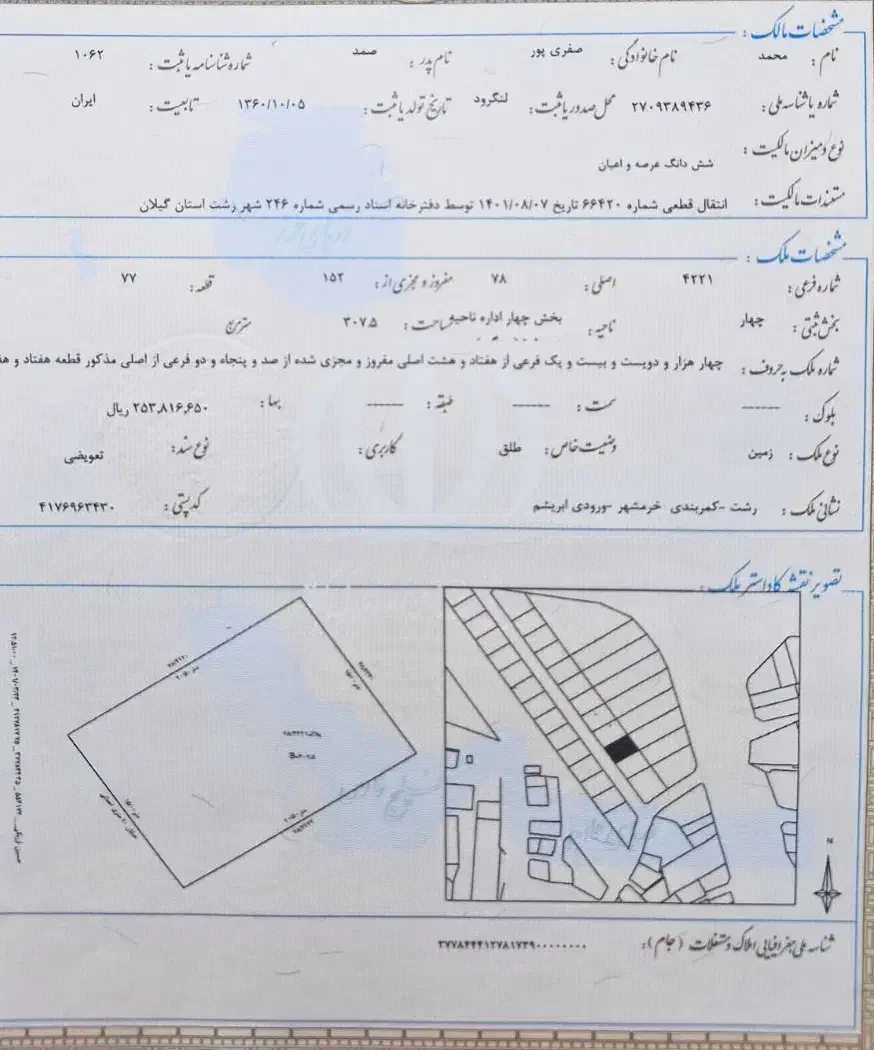 مشخصات مالک :
نام : محمد نام خانوادگی : صفری پور نام پدر : صمد شماره شناسنامه یا ثبت : ۱۰۶۲
شماره یا شناسه ملی : ۲۷۰۹۳۸۹۴۳۶ محل صدور یا ثبت : لنگرود تاریخ تولد یا ثبت : ۱۳۶۰/۱۰/۰۵ تابعیت : ایران
نوع و میزان مالکیت : شش دانگ عرصه و اعیان
مستندات مالکیت : انتقال قطعی شماره ۶۶۴۲۰ تاریخ ۱۴۰۱/۰۸/۰۷ توسط دفترخانه اسناد رسمی شماره ۲۴۶ شهر رشت استان گیلان
مشخصات ملک :
شماره فرعی : ۴۲۲۱ اصلی : ۷۸ مفروز و مجزی از : ۱۵۲ قطعه : ۷۷
بخش ثبتی : چهار ناحیه : بخش چهار اداره ناحیه مساحت : ۳۰۷.۵ مترمربع
شماره ملک به حروف : چهار هزار و دویست و بیست و یک فرعی از هفتاد و هشت اصلی مفروز و مجزی شده از صد و پنجاه و دو فرعی از اصلی مذکور قطعه هفتاد و
بلوک : ------ سمت : ------ طبقه : ------ بها : ۲۵۳,۸۱۶,۶۵۰ ریال
نوع ملک : زمین وضعیت خاص : طلق کاربری : نوع سند : تعویضی
نشانی ملک : رشت -کمربندی خرمشهر -ورودی ابریشم کد پستی : ۴۱۷۶۹۶۳۴۳۰
تصویر نقشه کاداستر ملک :
N
شناسه ملی جغرافیایی املاک و مستغلات (جام) : ۳۷۷۸۴۴۴۱۲۷۸۱۷۳۹۰۰۰۰۰۰۰۰